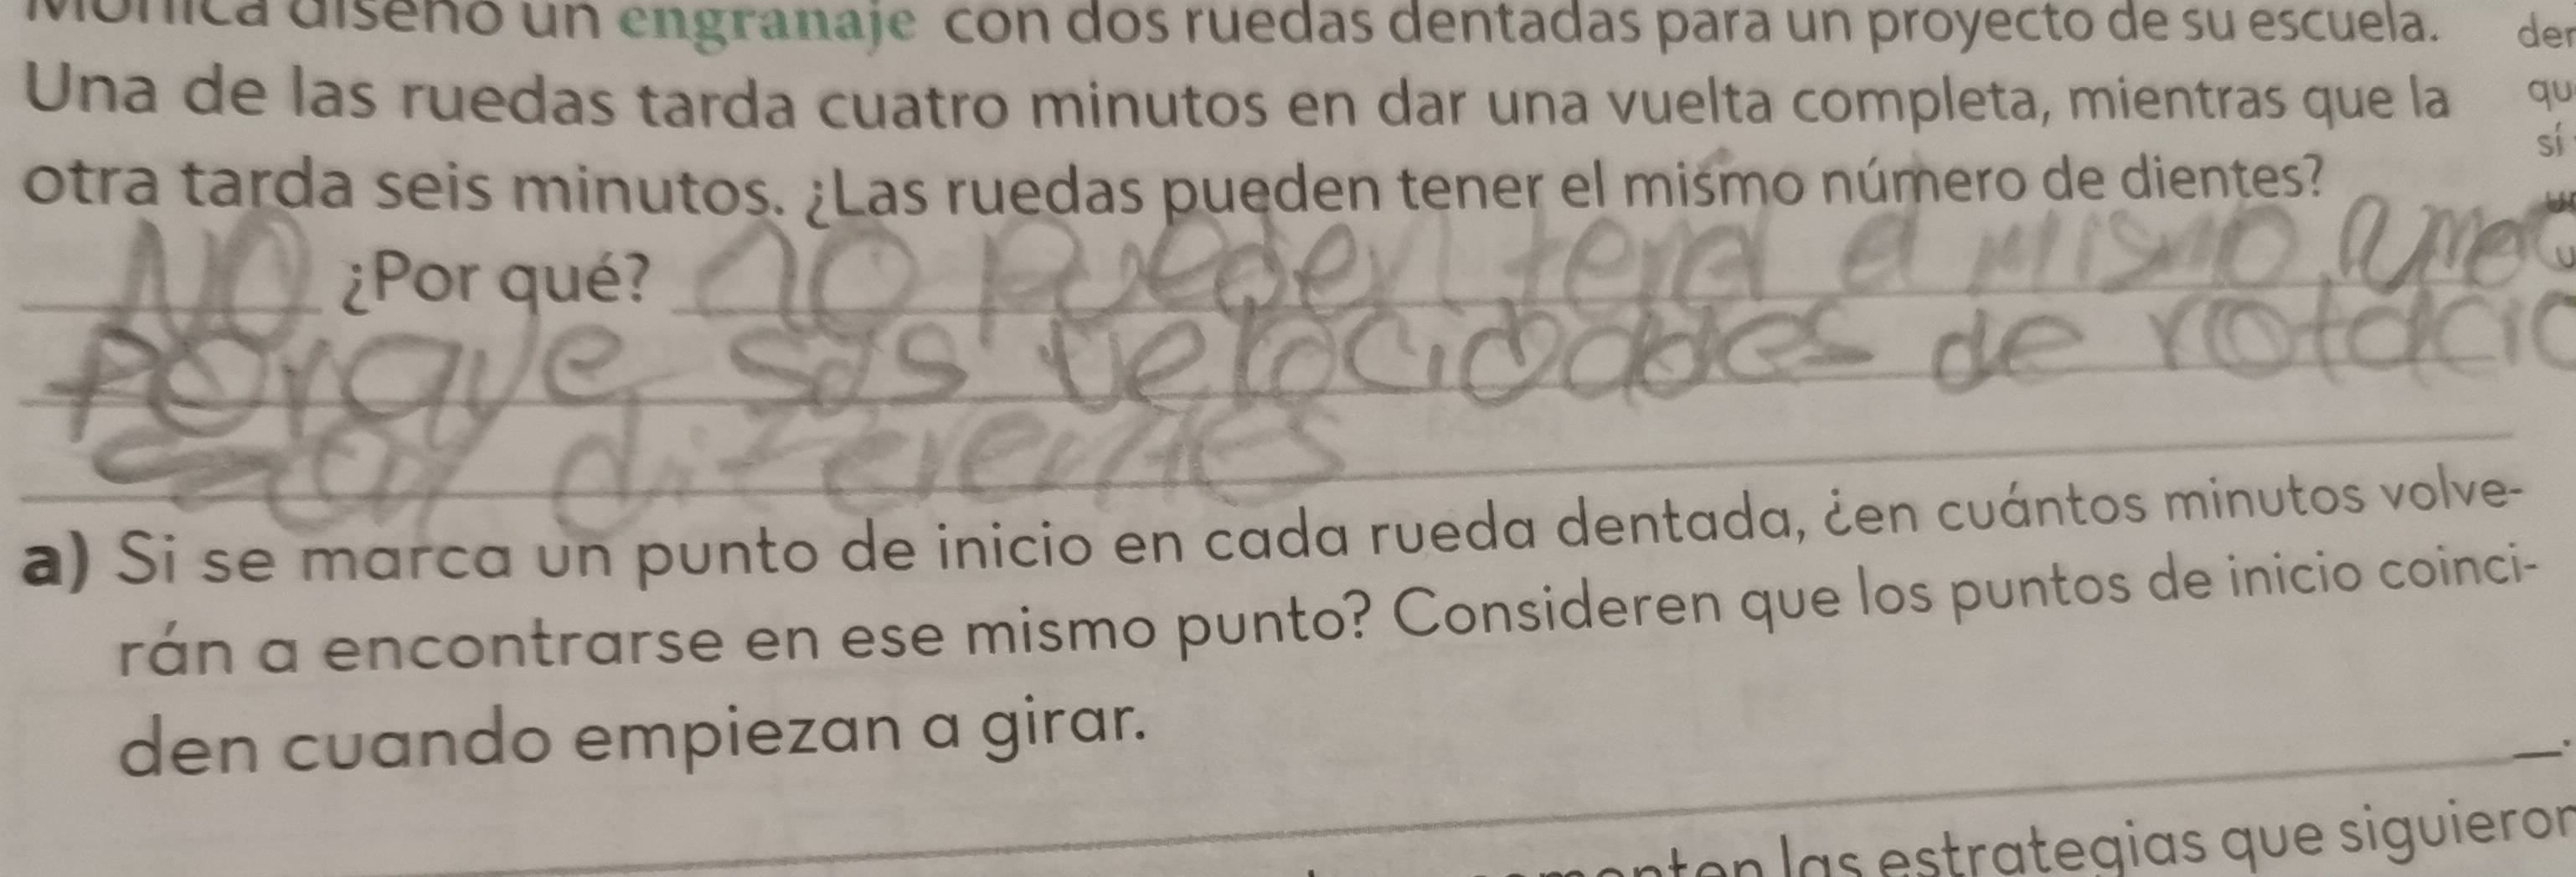 Mónica diseñó un engranaje con dos ruedas dentadas para un proyecto de su escuela.
Una de las ruedas tarda cuatro minutos en dar una vuelta completa, mientras que la
otra tarda seis minutos. ¿Las ruedas pueden tener el mismo número de dientes?
NO ¿Por qué? no pueden el mismo
Porque sos velocidades de rotacio
diferentes
a) Si se marca un punto de inicio en cada rueda dentada, ¿en cuántos minutos volve-
rán a encontrarse en ese mismo punto? Consideren que los puntos de inicio coinci-
den cuando empiezan a girar.
las estrategias que siguieron
der
qu
sí